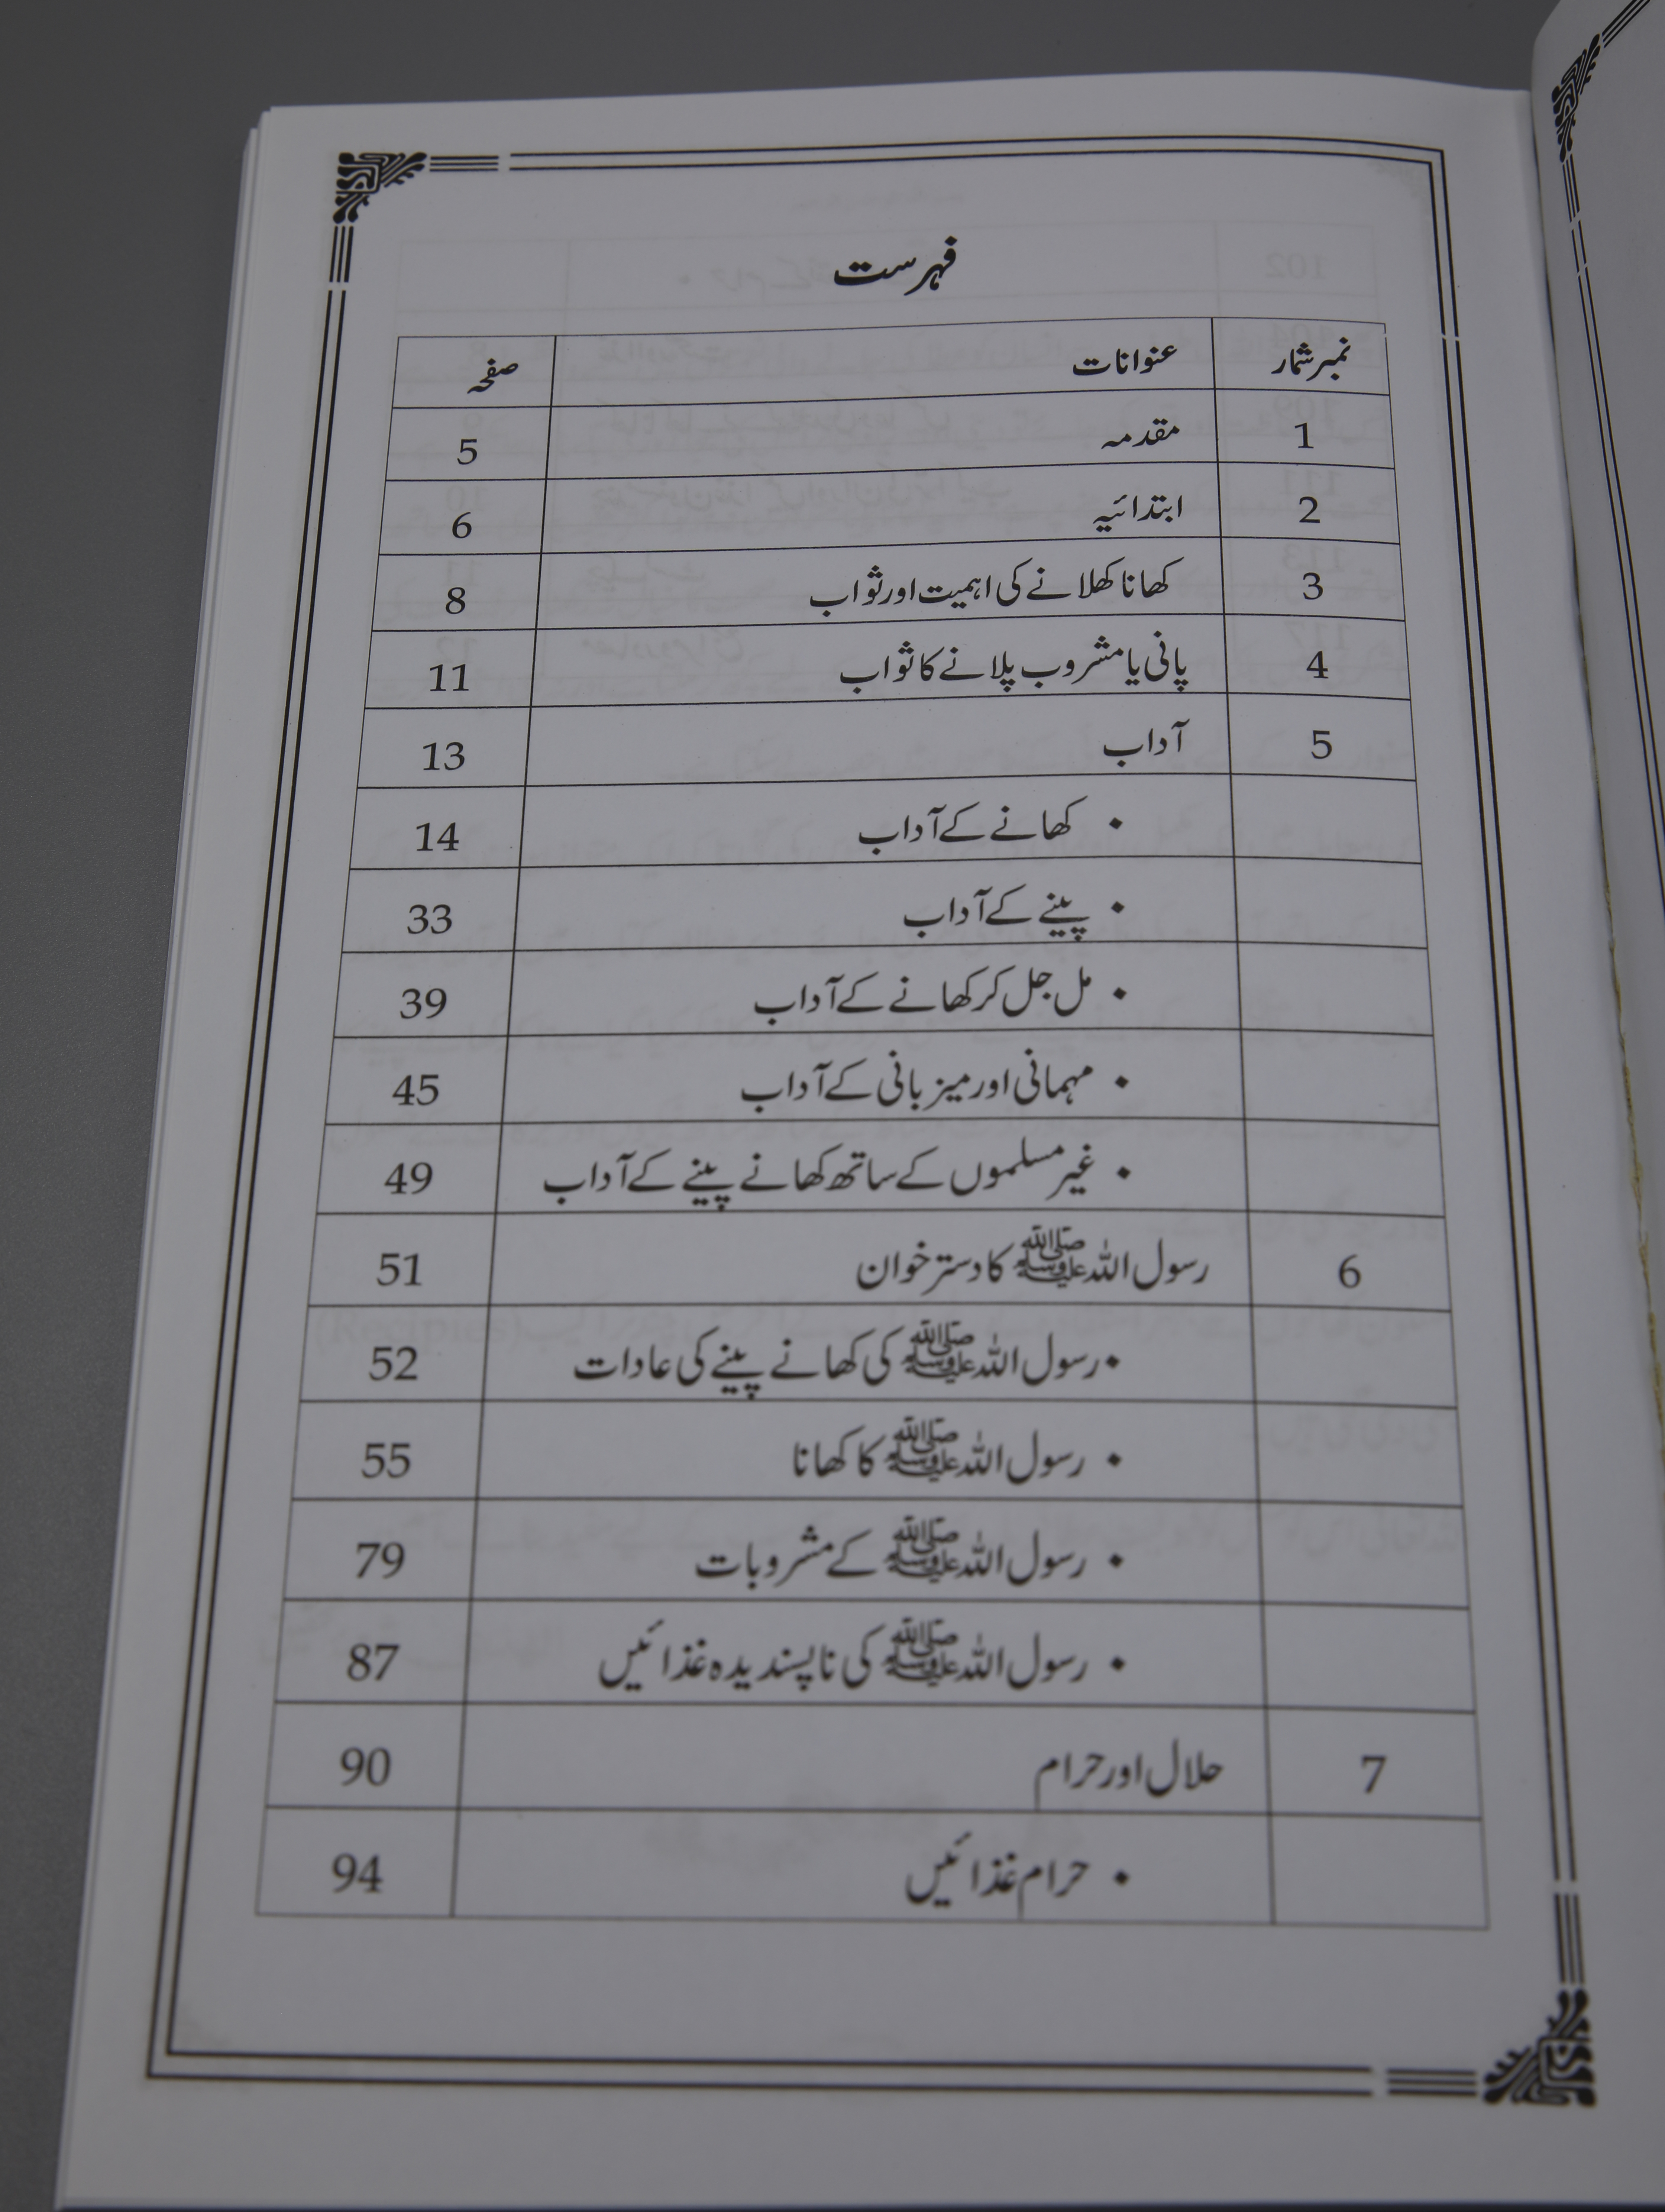 فہرست
نمبر شمار عنوانات صفحہ
1 مقدمہ 5
2 ابتدائیہ 6
3 کھانا کھلانے کی اہمیت اور ثواب 8
4 پانی یا مشروب پلانے کا ثواب 11
5 آداب 13
• کھانے کے آداب 14
• پینے کے آداب 33
• مل جل کر کھانے کے آداب 39
• مہمانی اور میزبانی کے آداب 45
• غیر مسلموں کے ساتھ کھانے پینے کے آداب 49
6 رسول اللہ ﷺ کا دستر خوان 51
• رسول اللہ ﷺ کی کھانے پینے کی عادات 52
• رسول اللہ ﷺ کا کھانا 55
• رسول اللہ ﷺ کے مشروبات 79
• رسول اللہ ﷺ کی ناپسندیدہ غذائیں 87
7 حلال اور حرام 90
• حرام غذائیں 94